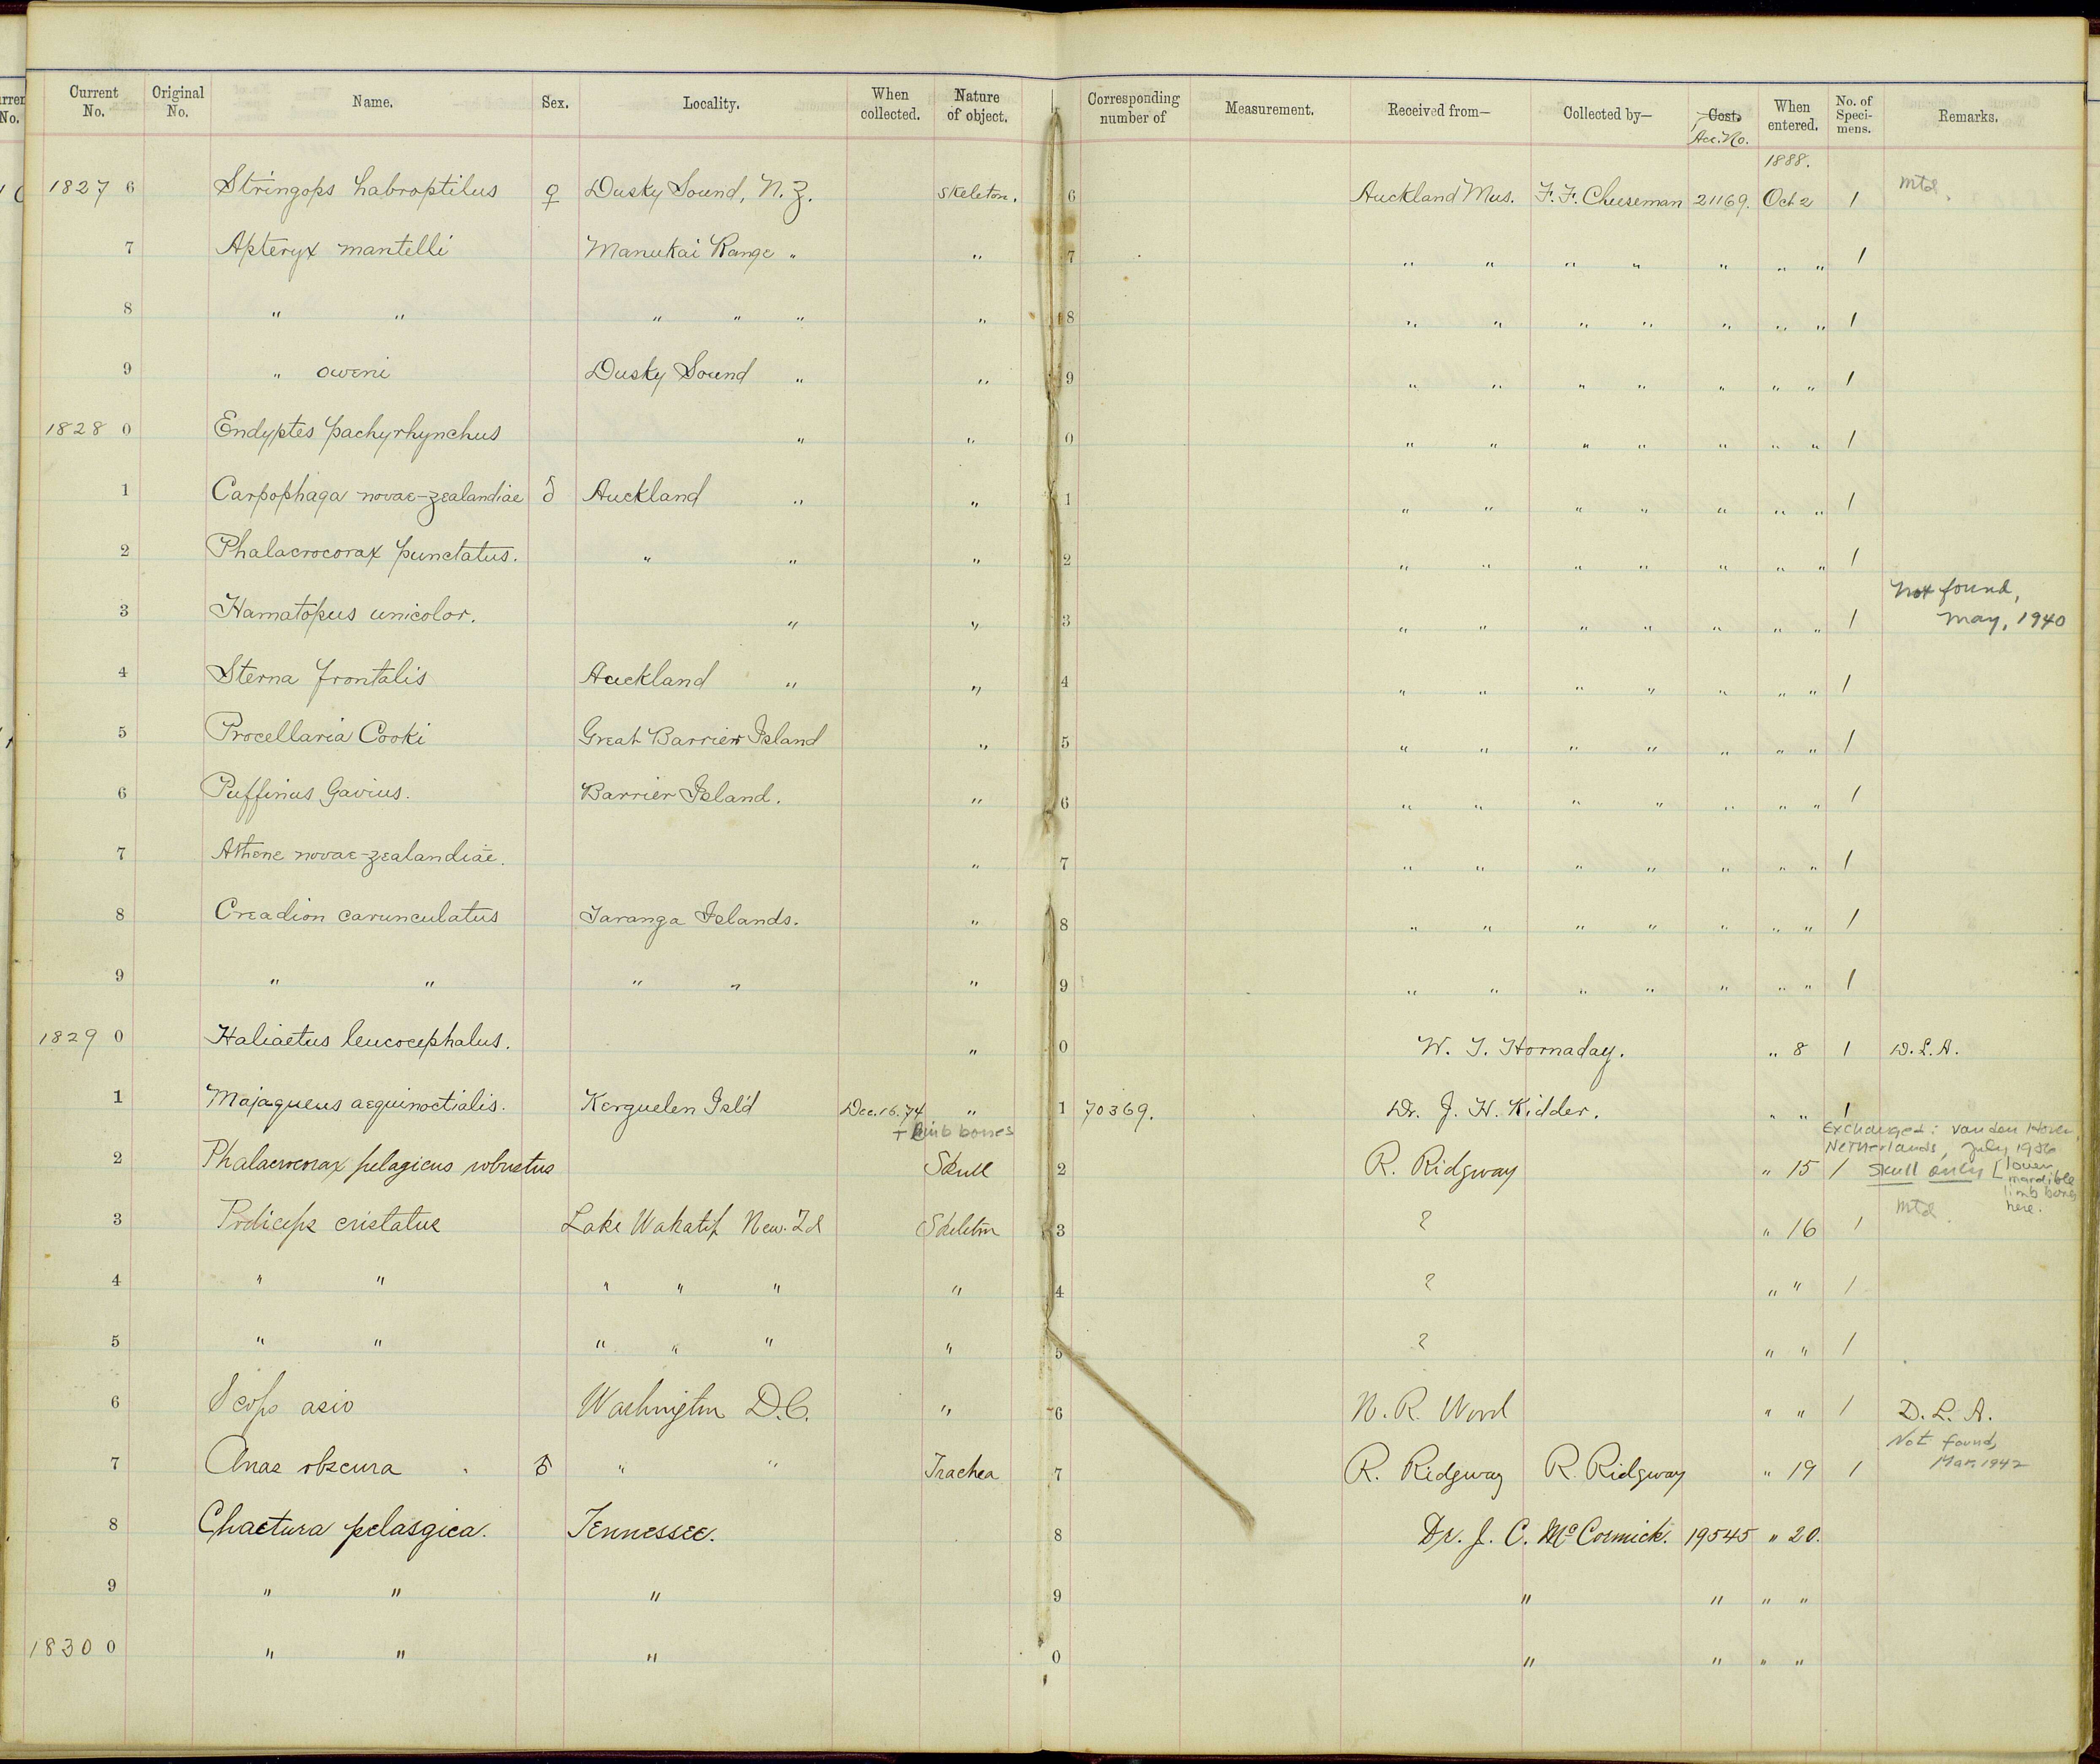 Current No. Original No. Name. Sex. Locality. When collected. Nature of object. Corresponding number of Measurement. Received from— Collected by— Cost. Acc. No. When entered. No. of Specimens. Remarks.
1888.
1827 6 Stringops habroptilus ♀ Dusky Sound, N. Z. Skeleton. 6 Auckland Mus. F. F. Cheeseman 21169. Oct. 2 1 Mtd.
7 Apteryx mantelli Manukai Range " " 7 " " " " " " " 1
8 " " " " " " 8 " " " " " " " 1
9 " oweni Dusky Sound " " 9 " " " " " " " 1
1828 0 Endyptes pachyrhynchus " " 0 " " " " " " " 1
1 Carpophaga novae-zealandiae ♂ Auckland " " 1 " " " " " " " 1
2 Phalacrocorax punctatus. " " " 2 " " " " " " " 1
3 Hamatopus unicolor. " " 3 " " " " " " " 1 Not found, May, 1940
4 Sterna frontalis Auckland " " 4 " " " " " " " 1
5 Procellaria Cooki Great Barrier Island " 5 " " " " " " " 1
6 Puffinus Gavius. Barrier Island. " 6 " " " " " " " 1
7 Athene novae-zealandiae. " 7 " " " " " " " 1
8 Creadion carunculatus Taranga Islands. " 8 " " " " " " " 1
9 " " " " " 9 " " " " " " " 1
1829 0 Haliaetus leucocephalus. " 0 W. T. Hornaday. " 8 1 D. L. A.
1 Majaqueus aequinoctialis. Kerguelen Isl'd Dec. 16. 74 " 1 70369. Dr. J. H. Kidder. " " 1
+ limb bones Exchanged: van den Hoven, Netherlands, July, 1956
2 Phalacrocorax pelagicus robustus Skull 2 R. Ridgway " 15 1 Skull only [lower mandible limb bones here.
3 Podiceps cristatus Lake Wakatip New. Zd Skeleton 3 ? " 16 1 Mtd.
4 " " " " " " 4 ? " " 1
5 " " " " " " 5 ? " " 1
6 Scops asio Washington D.C. " 6 N. R. Wood " " 1 D. L. A.
7 Anas obscura ♂ " " Trachea 7 R. Ridgway R. Ridgway " 19 1 Not found, Mar. 1942
8 Chaetura pelasgica. Tennessee. 8 Dr. J. C. McCormick. 19545 " 20.
9 " " " 9 " " " "
1830 0 " " " 0 " " " "